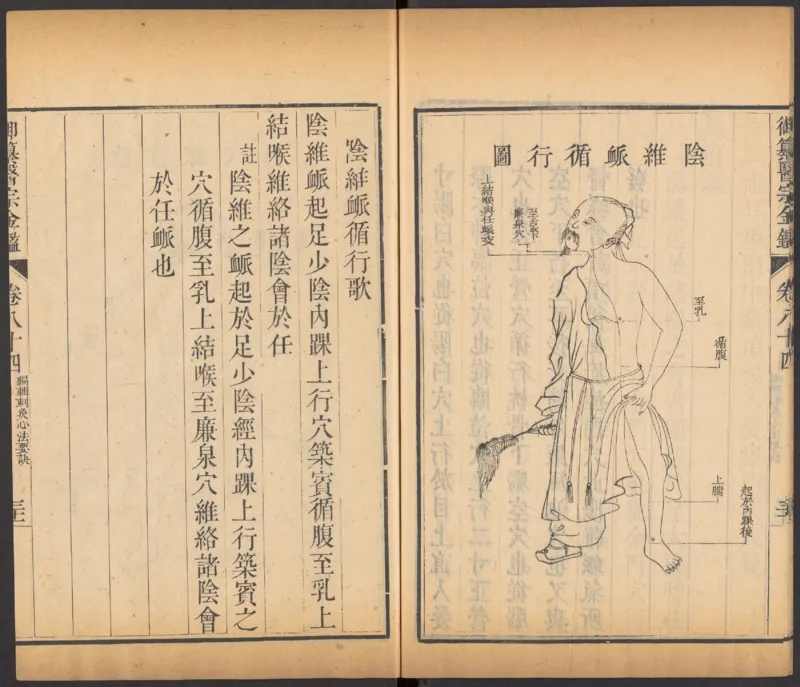 陰維脈循行圖
上結喉與任脈交
至舌下
廉泉穴
至乳
循腹
上腨
起於內踝後
陰維脈循行歌
陰維脈起足少陰內踝上行穴築賓循腹至乳上
結喉維絡諸陰會於任
註
陰維之脈起於足少陰經內踝上行築賓之
穴循腹至乳上結喉至廉泉穴維絡諸陰會
於任脈也
御纂醫宗金鑑
卷八十四
編輯刺灸心法要訣
御纂醫宗金鑑
卷八十四